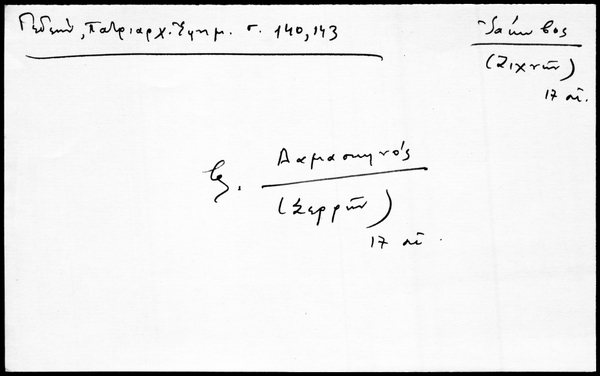 Γεδεών, Πατριαρχ. Ἐφημ. σ. 140, 143
Ἰάκωβος
(Ζιχνῶν)
17 αἰ.
βλ. Δαμασκηνός
(Σερρῶν)
17 αἰ.